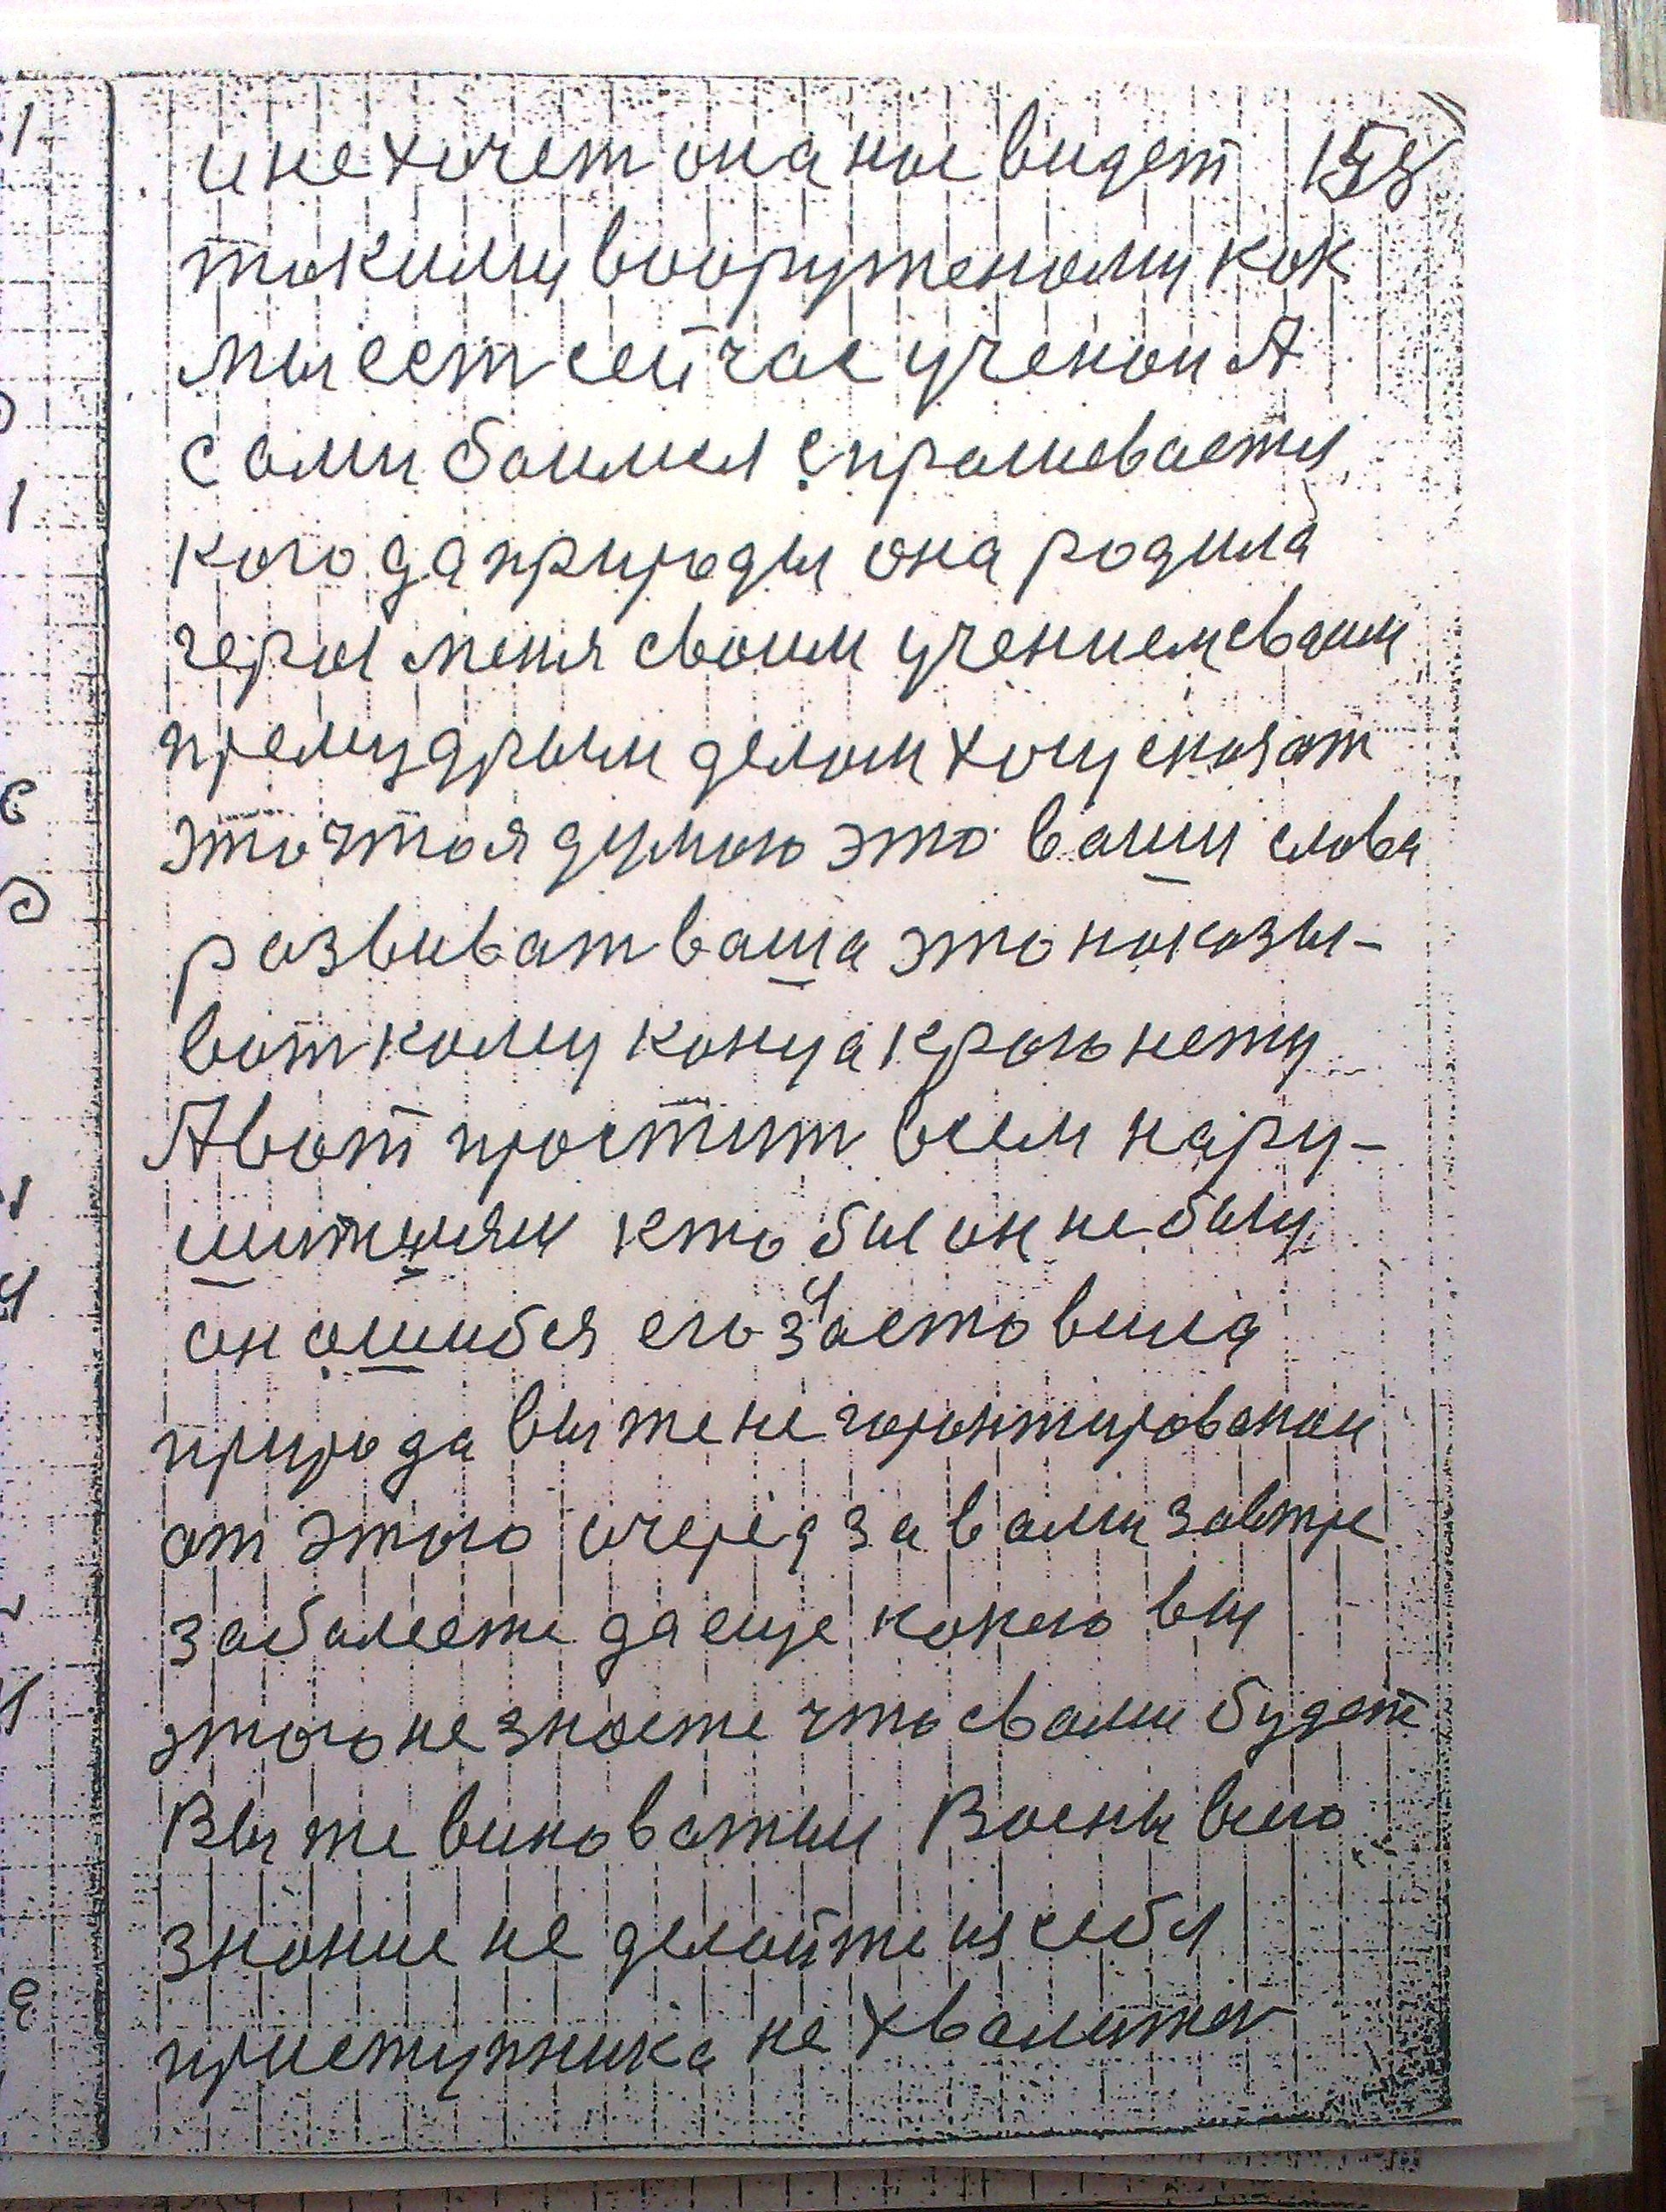 и не хочет она нас видет 158
такими вооружеными как
мы ест сейчас ученои А
сами боимся спрашевается
кого да природы она родила
через меня своим учением своим
премудрым делом хочу сказат
это что я думаю это ваши слова
развиват ваша это показы-
ват кому конца краю нету
А вот простит всем нару-
шителям кто бы он не был
он ошибся его заставила
природа вы же не гарантированои
от этого очеред за вами завтре
заболеете да еще какею вы
этого не знаете что с вами будет
Вы же виноватыи Воены в его
знание не делайте из себя
приступника не хвалитес